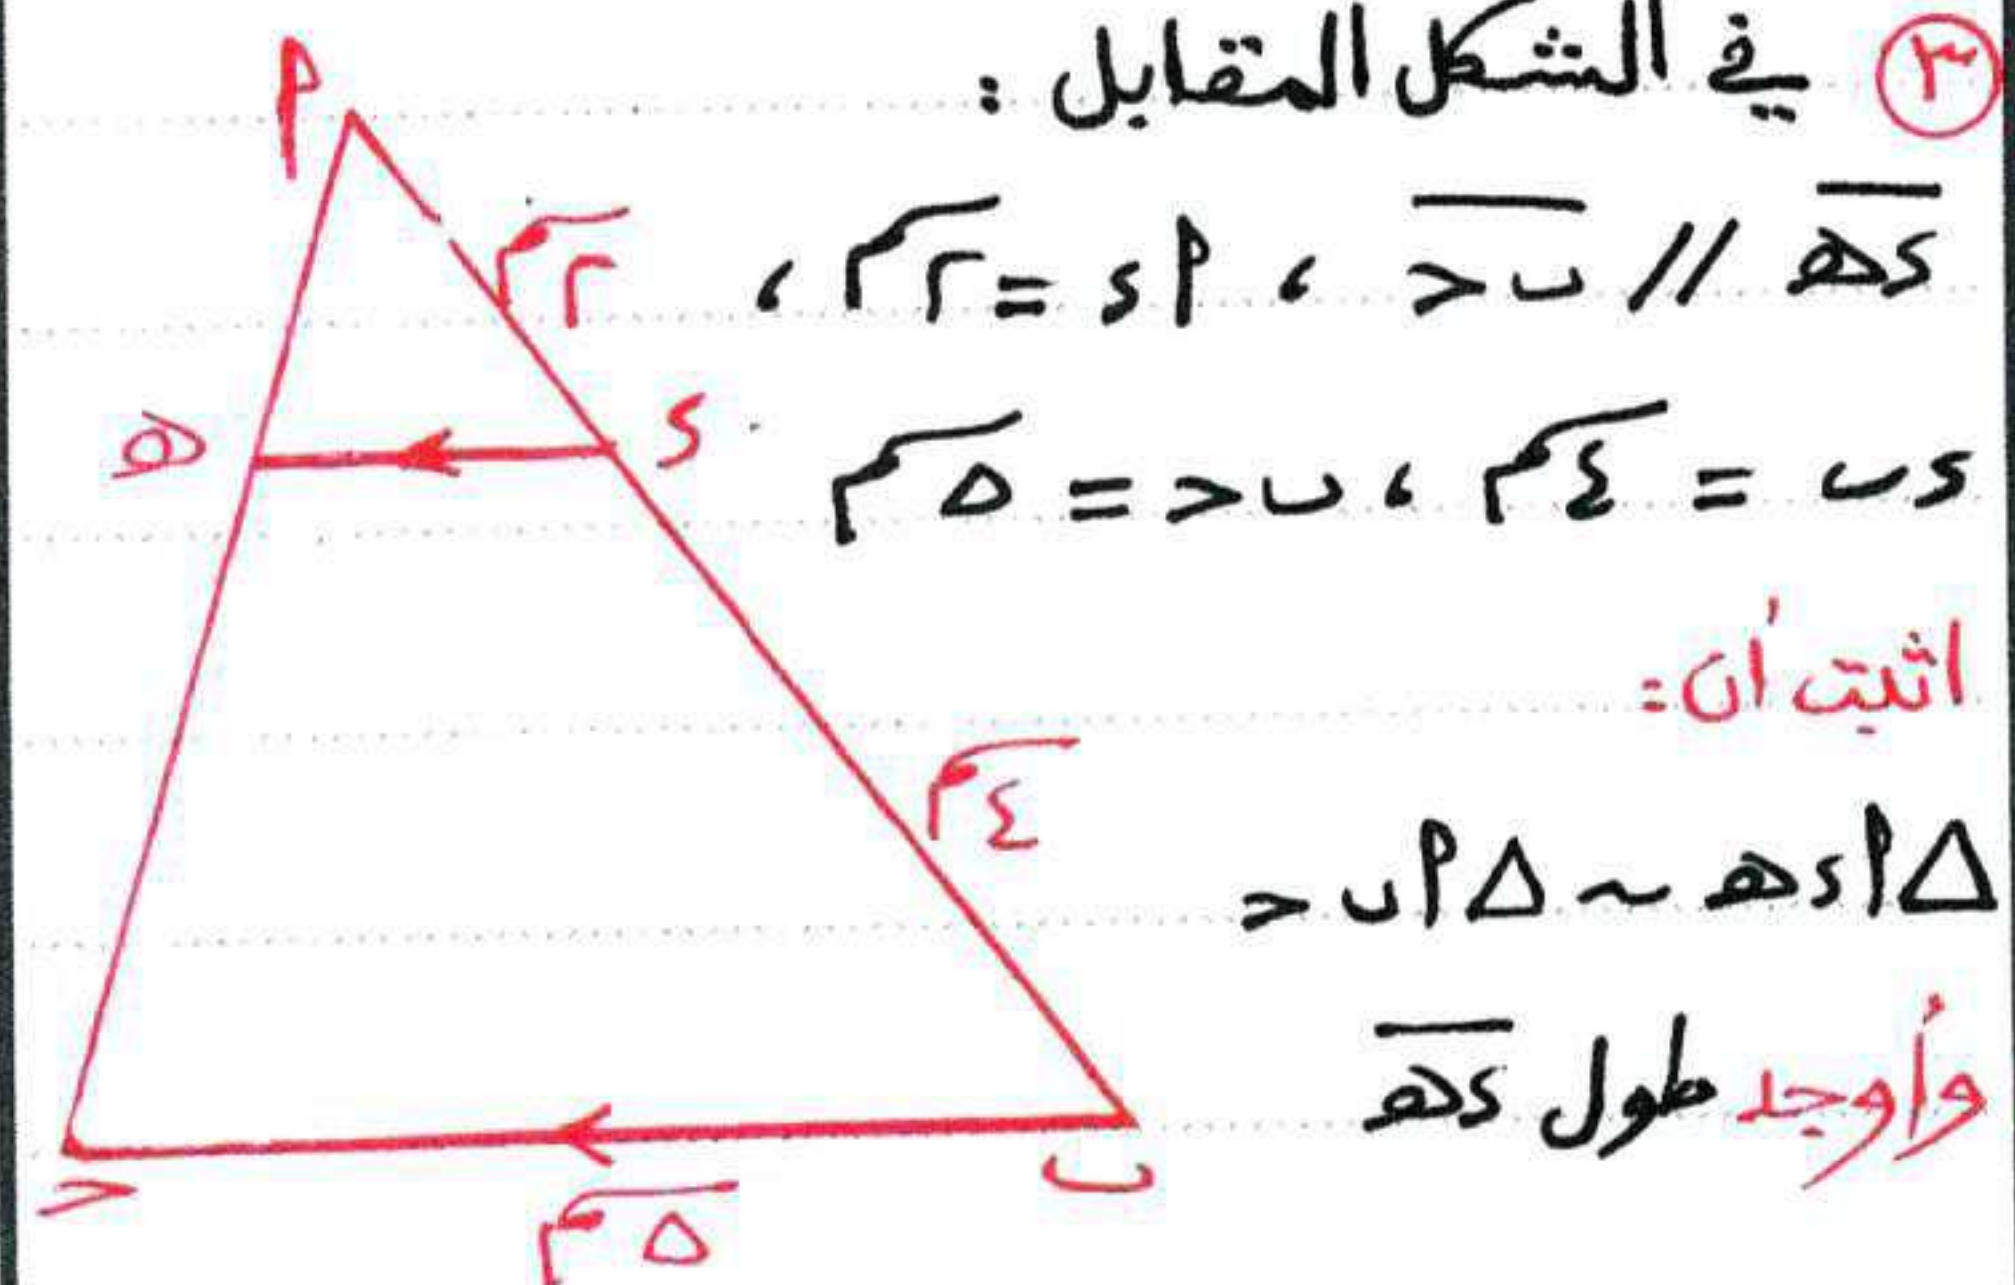 ٣ في الشكل المقابل :
د ه // ب ح ، أ د = ٢ سم ،
د ب = ٤ سم ، ب ح = ٥ سم
اثبت أن :
Δ أ د ه ~ Δ أ ب ح
وأوجد طول د ه
أ
٢ سم
د
ه
٤ سم
ب
ح
٥ سم